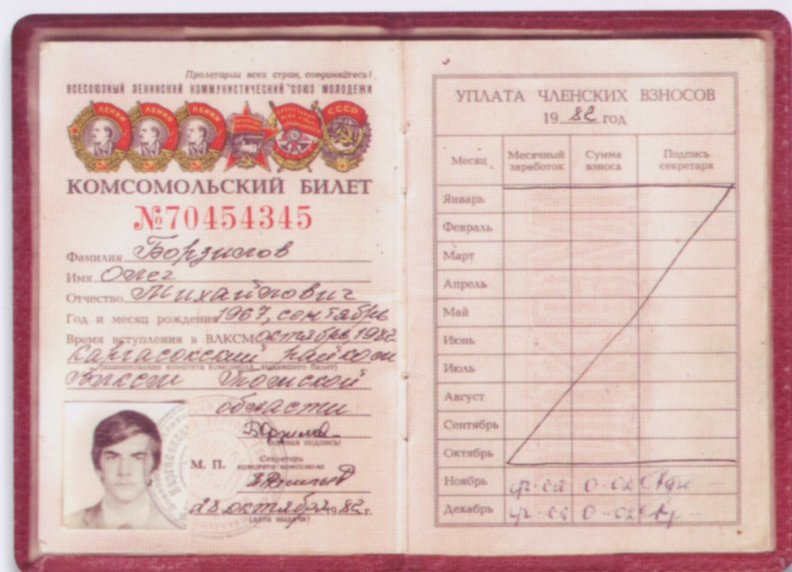 Пролетарии всех стран, соединяйтесь!
ВСЕСОЮЗНЫЙ ЛЕНИНСКИЙ КОММУНИСТИЧЕСКИЙ СОЮЗ МОЛОДЕЖИ
КОМСОМОЛЬСКИЙ БИЛЕТ
№70454345
Фамилия Борзилов
Имя Олег
Отчество Михайлович
Год и месяц рождения 1967, сентябрь
Время вступления в ВЛКСМ октябрь, 1982
Каргасокский райком
(наименование комитета комсомола, выдавшего билет)
ВЛКСМ Томской
области
(личная подпись)
М. П.
Секретарь
комитета комсомола
28 октября 1982 г.
(дата выдачи)
УПЛАТА ЧЛЕНСКИХ ВЗНОСОВ
19 82 ГОД
Месяц Месячный заработок Сумма взноса Подпись секретаря
Январь
Февраль
Март
Апрель
Май
Июнь
Июль
Август
Сентябрь
Октябрь
Ноябрь 0-02
Декабрь 0-02